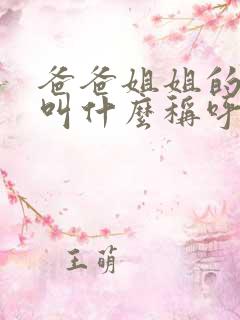 爸爸姐姐的
叫什麽稱呼
王萌